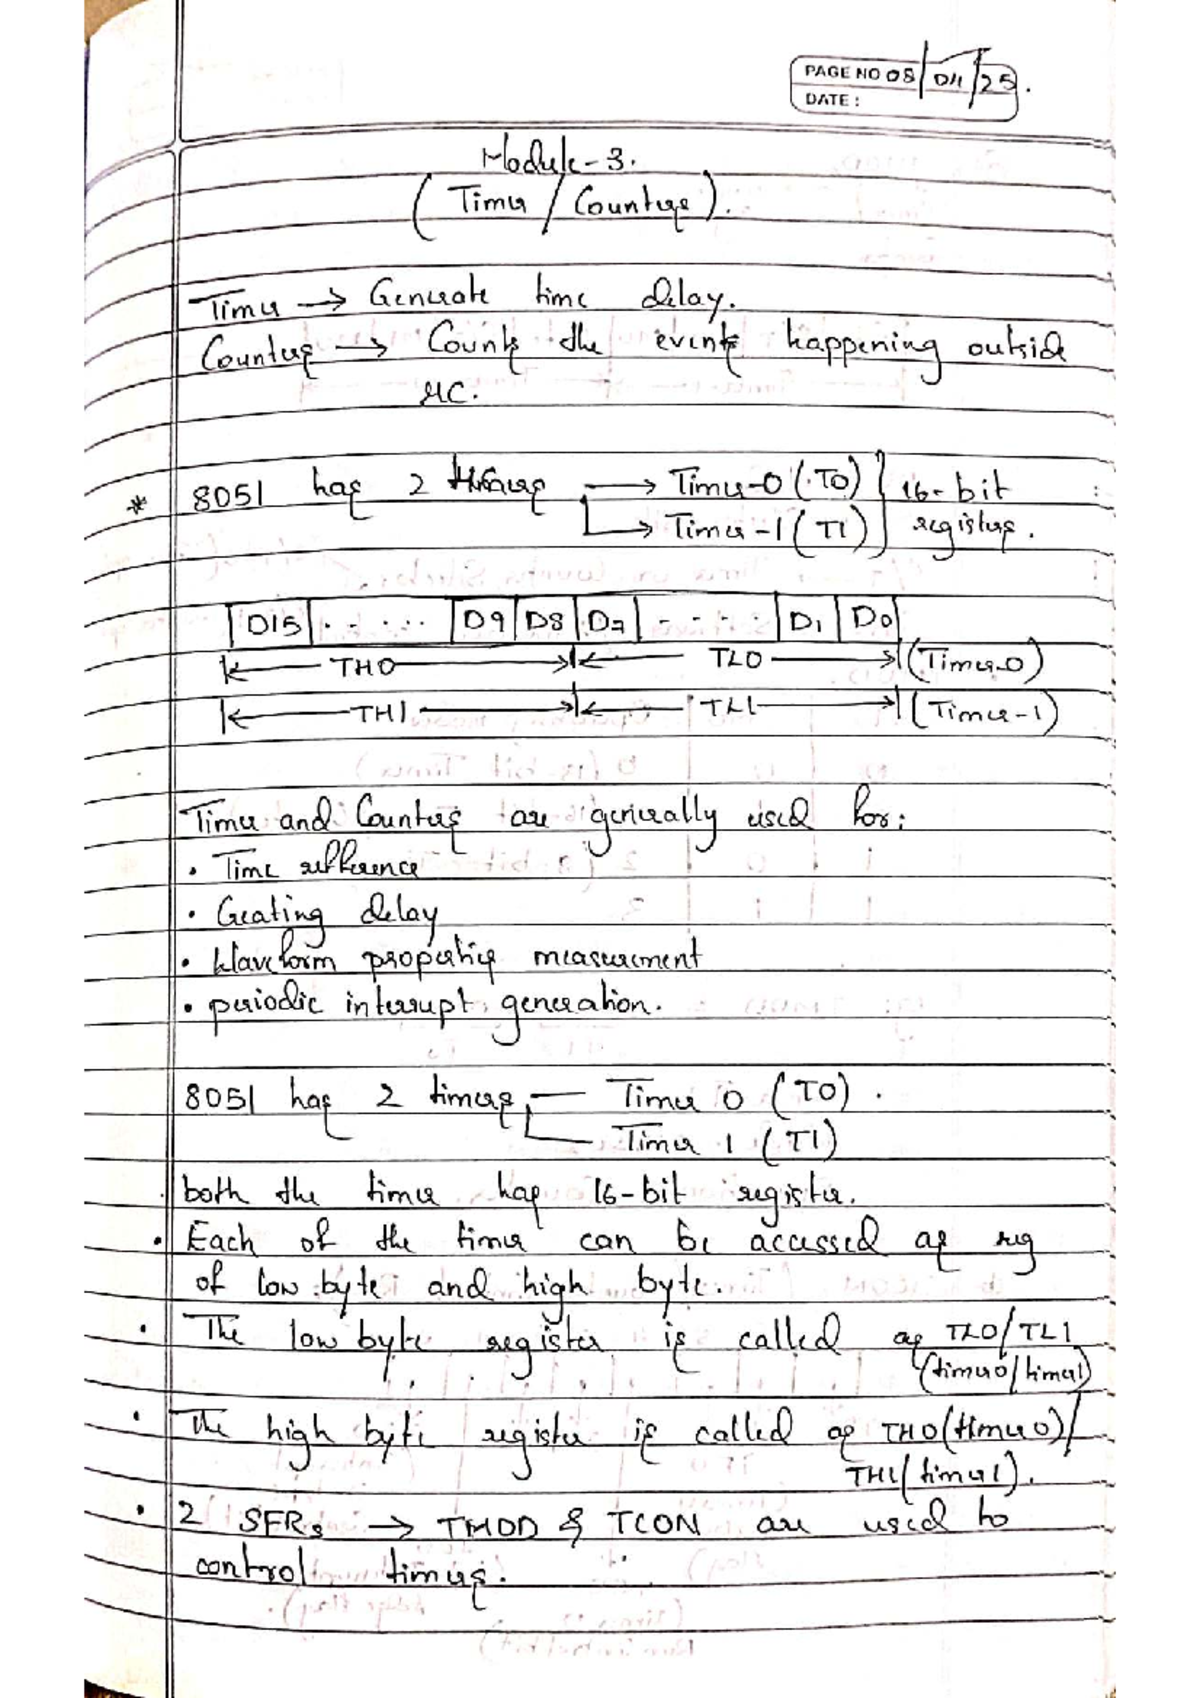 PAGE NO 08/04/25.
DATE:
Module-3.
(Timer / Counters).
Timer → Generate time delay.
Counters → Counts the events happening outside
μC.
* 8051 has 2 timers → Timer-0 (T0) } 16-bit
→ Timer-1 (T1) registers.
D15 ..... D9 D8 D7 .... D1 D0
TH0 TL0 (Timer-0)
TH1 TL1 (Timer-1)
Timer and Counters are generally used for:
• Time refference
• Creating delay
• Waveform properties measurement
• periodic interrupt generation.
8051 has 2 timers — Timer 0 (T0).
— Timer 1 (T1)
both the timer has 16-bit register.
• Each of the timer can be accessed as reg
of low byte and high byte.
• The low byte register is called as TL0/TL1
(timer0/timer1)
• The high byte register is called as TH0(timer0)/
TH1(timer1).
• 2 SFRs → TMOD & TCON are used to
control timers.